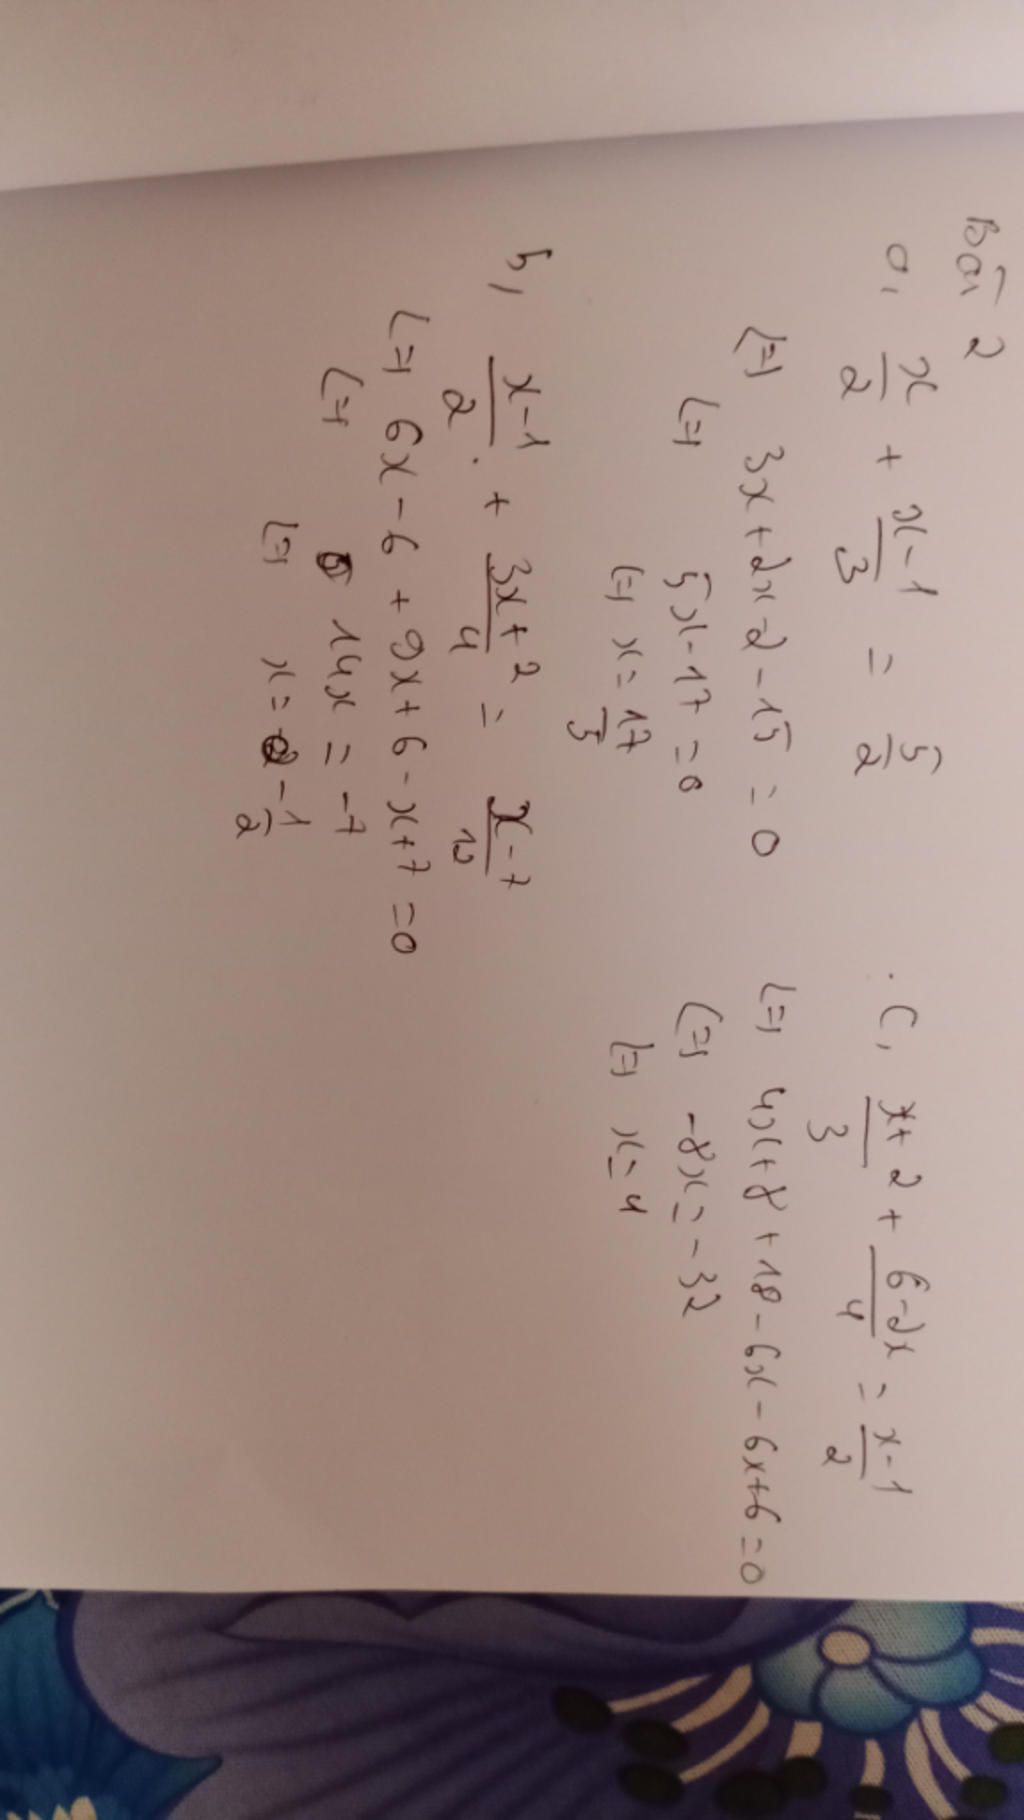 Bài 2
a, x/2 + x-1/3 = 5/2
<=> 3x + 2x - 2 - 15 = 0
<=> 5x - 17 = 0
<=> x = 17/5
b, x-1/2 + 3x+2/4 = x-7/12
<=> 6x - 6 + 9x + 6 - x + 7 = 0
<=> 14x = -7
<=> x = -1/2
c, x+2/3 + 6-2x/4 = x-1/2
<=> 4x + 8 + 18 - 6x - 6x + 6 = 0
<=> -8x = -32
<=> x = 4